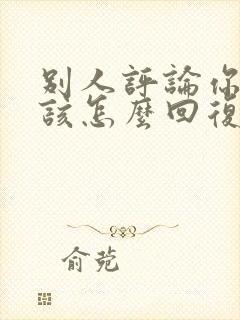 別人評論你
該怎麼回復
俞菀